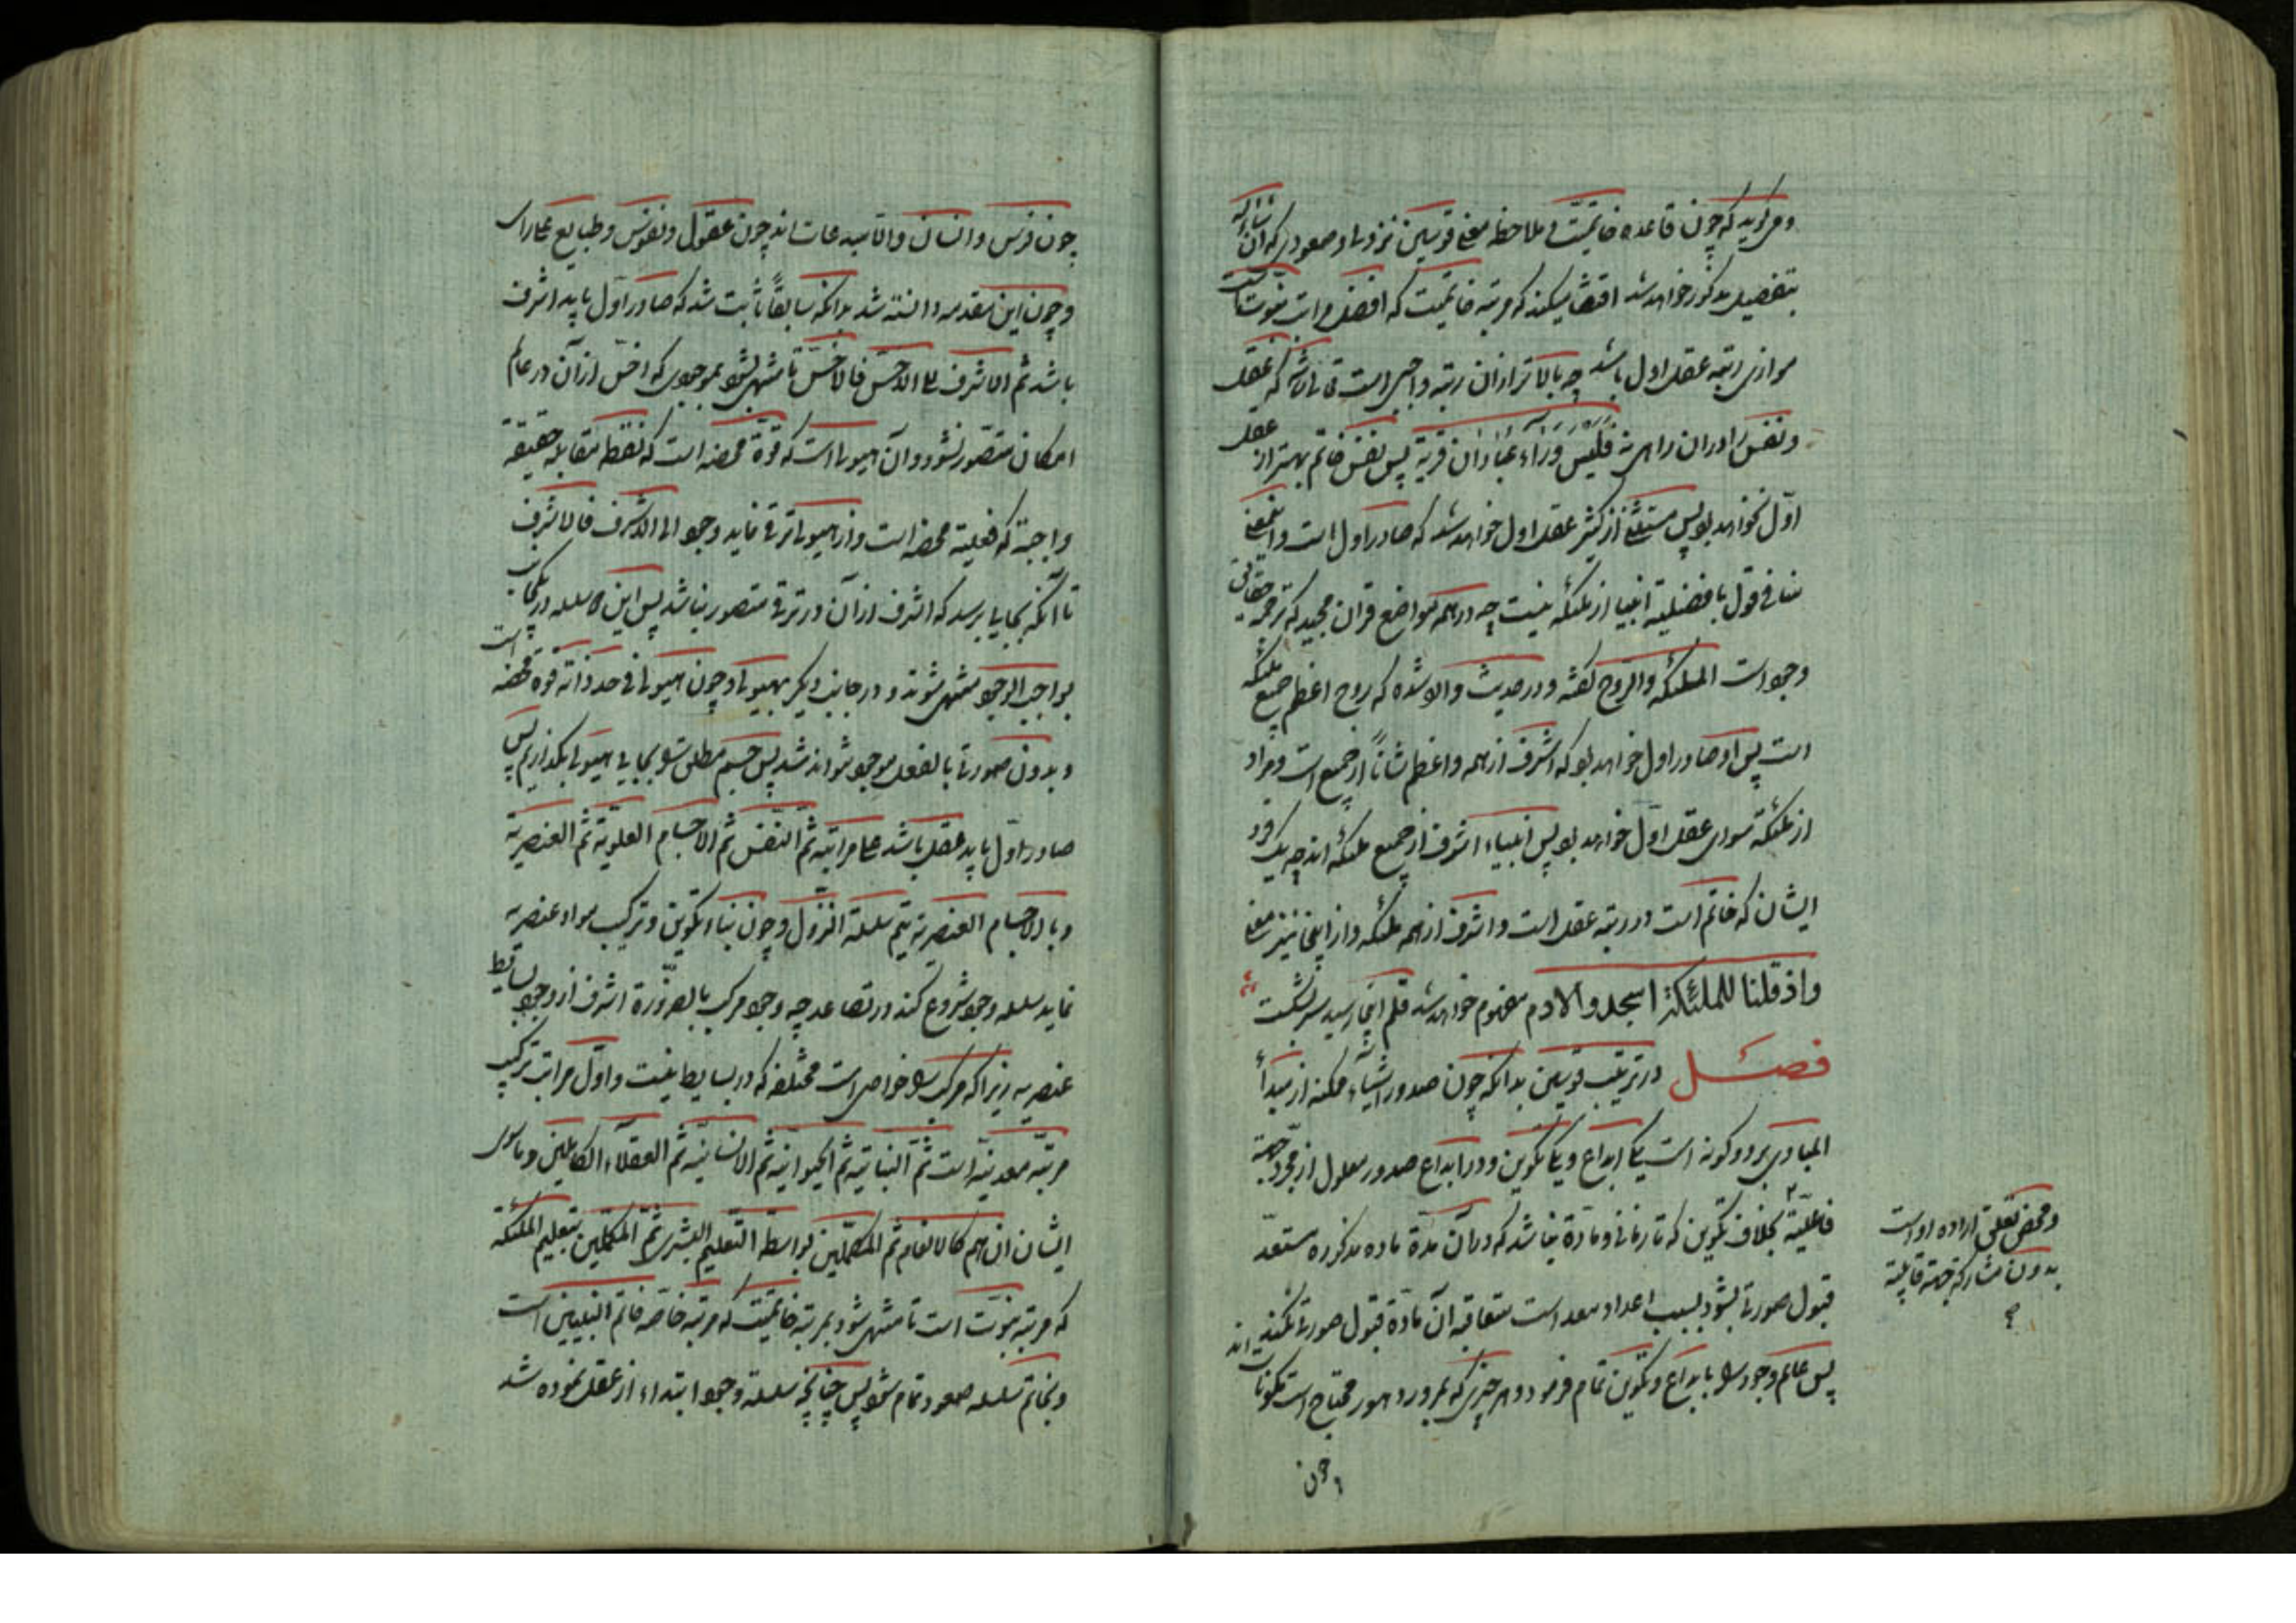 و می گوید که چون قاعده خاتمیت و ملاحظه معنی قوسین نزولی و صعودی که آن شاء الله
بتفصیل مذکور خواهد شد اقتضا میکند که مرتبه خاتمیت که افضل مراتب نبوت است
موازی رتبه عقل اول باشد چه بالاتر از ان رتبه واجبی است که عقل
و نفس را در ان راهی نه فلیس وراء عبادان قریة پس نفس خاتم بهتر از عقل
اول نخواهد بود پس مستثنی از کثیر عقل اول خواهد شد که صادر اول است و اینمعنی
منافی قول بافضلیة انبیا از ملئکه نیست چه در همه مواضع قران مجید که ترجمه حقایق
وجود است الملئکه والروح گفته و در حدیث وارد شده که روح اعظم جمیع ملئکه
است پس او صادر اول خواهد بود که اشرف از همه و اعظم شاناً از جمیع است و مراد
از ملئکه سوای عقل اول خواهد بود پس انبیاء اشرف از جمیع ملئکه اند چه یک فرد
ایشان که خاتم است در رتبه عقل است و اشرف از همه ملئکه و از اینجا نیز معنی
واذ قلنا للملئکة اسجدوا لادم مفهوم خواهد شد قلم اینجا رسید سر بشکست
فصل در ترتیب قوسین بدانکه چون صدور اشیاء ممکنه از مبدأ
المبادی بر دو گونه است یکی ابداع و یکی تکوین و در ابداع صدور معلول از مجرد جهة
فاعلیة بخلاف تکوین که تا زمانی و مادة نباشد که در آن مدة ماده مذکوره مستعد
قبول صورتی بشود بسبب اعداد معد است متعاقبه آن مادة قبول صورتی نکند
پس عالم وجود را بابداع و تکوین تمام فرمود و هر چیزی که بمرور دهور محتاج است مکونات اند
و محض تعلق اراده اوست
بدون مشارکة جهة قابلیة
و چون
چون فرس و انسان و الا مبدعات اند چون عقول و نفوس و طبایع علی رای
و چون این مقدمه دانسته شد بدانکه سابقاً ثابت شد که صادر اول باید اشرف
باشد ثم الاشرف الی الاخس فالاخس تا منتهی شود بموجودی که اخس از آن در عالم
امکان متصور نشود و آن هیولی است که قوة محضه است که نقطه مقابله حقیقة
واجبة که فعلیة محضه است و از هیولی ترقی نماید وجود الی الاشرف فالاشرف
تا آنکه بجایی برسد که اشرف از آن در ترقی متصور نباشد پس این سلسله در یکجانب
بواجب الوجود منتهی شوند و در جانب دیگر بهیولی و چون هیولی فی حد ذاته قوه محضه است
و بدون صورتی بالفعل موجود نتواند شد پس جسم مطلق را بجای هیولی بگذاریم پس
صادر اول باید عقل باشد علی مراتبه ثم النفس ثم الاجسام العلویة ثم العنصریة
و بالاجسام العنصریة یتم سلسلة النزول و چون بناء تکوین و ترکیب مواد عنصریه
نماید سلسله وجود شروع کند در تصاعد چه وجود مرکب بالضرورة اشرف از وجود بسایط
عنصریه زیرا که مرکب را خواصی است مختلفه که در بسایط نیست و اول مراتب ترکیب
مرتبه معدنیه است ثم النباتیة ثم الحیوانیة ثم الانسانیة ثم العقلاء الکاملین و ماسوی
ایشان ان هم کالانعام ثم المکملین بواسطة التعلیم البشری ثم المکملین بتعلیم الملئکة
که مرتبه نبوت است تا منتهی شود بمرتبه خاتمیت که مرتبه خاصه خاتم النبیین است
و بخاتم سلسله صعود تمام شود پس چنانچه سلسله وجود ابتداء از عقل نموده شد